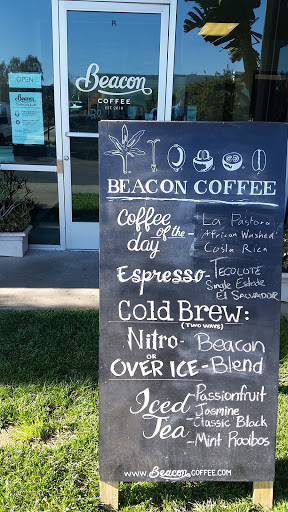 R
OPEN
Beacon
COFFEE
EST. 2010
Beacon
BEACON COFFEE
Coffee of the day - La Pastora
African Washed
Costa Rica
Espresso - TECOLOTE
Single Estate
El SALVADOR
Cold Brew:
(TWO WAYS)
Nitro - Beacon
OR
OVER ICE - Blend
Iced Tea - Passionfruit
- Jasmine
- Classic Black
- Mint Rooibos
WWW.BeaconCOFFEE.COM